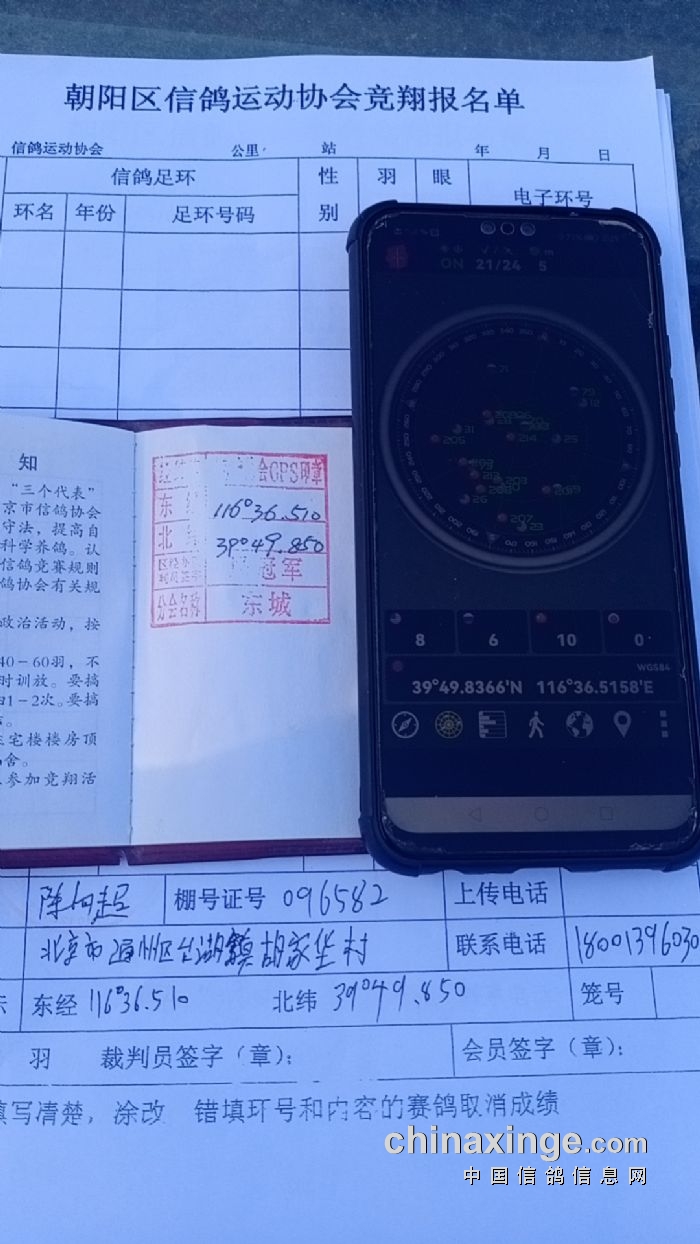 朝阳区信鸽运动协会竞翔报名单
信鸽运动协会 公里 站 年 月 日
信鸽足环 性别 羽 眼 电子环号
环名 年份 足环号码
知
“三个代表”
京市信鸽协会
守法，提高自
科学养鸽。认
信鸽竞赛规则
鸽协会有关规
政治活动，按
40-60羽，不
时训放。要搞
1-2次。要搞
主宅楼楼房顶
舍。
参加竞翔活
会GPS印章
东 116°36.510
北 39°49.850
冠军
分会名称 东城
ON 21/24 5
8 6 10 0
WGS84
39°49.8366'N 116°36.5158'E
棚号证号 096582 上传电话
北京市通州区台湖镇胡家垡村 联系电话 18001396030
东经 116°36.510 北纬 39°49.850 笼号
羽 裁判员签字（章）： 会员签字（章）：
填写清楚，涂改 错填环号和内容的赛鸽取消成绩
chinaxinge.com
中国信鸽信息网